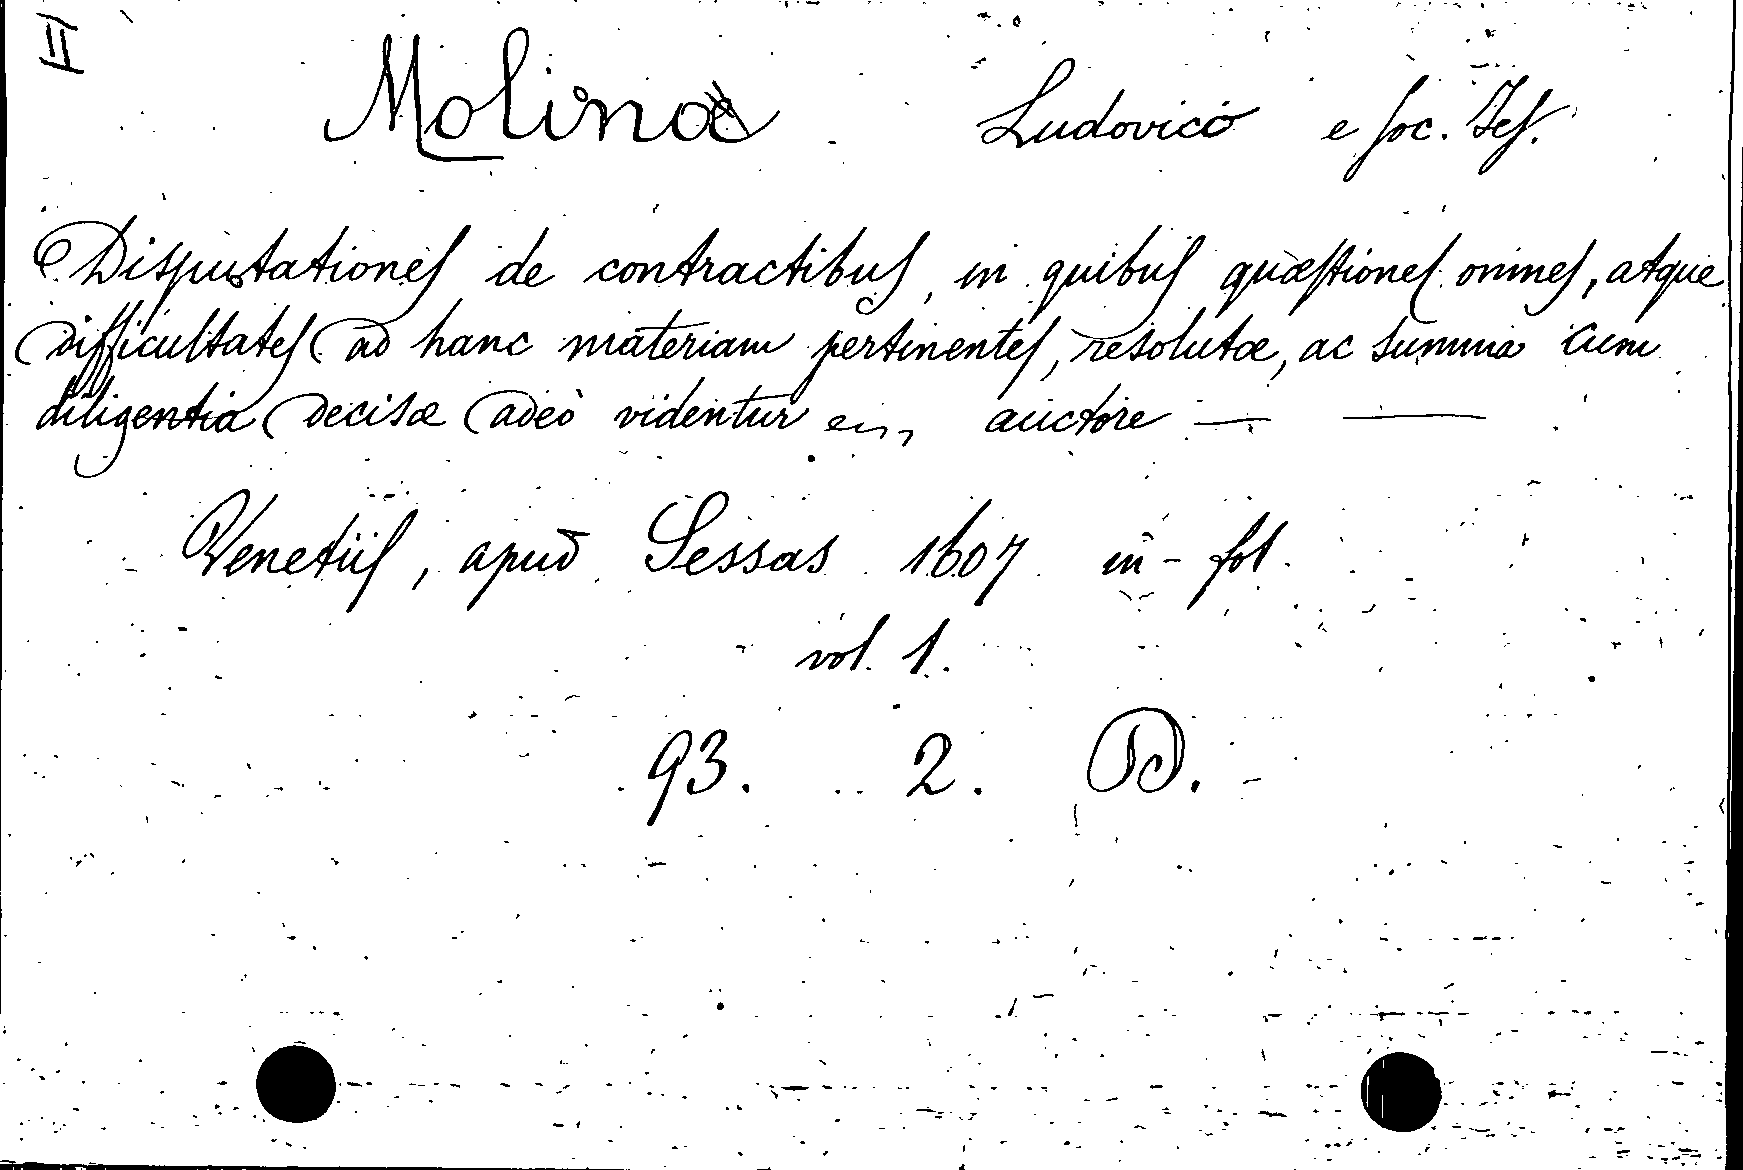 II
Molina Ludovico e Soc. Jes.
Disputationes de contractibus, in quibus quæstiones omnes, atque
difficultates ad hanc materiam pertinentes, resolutæ, ac summa cum
diligentia decisæ adeò videntur auctore — —
Venetiis, apud Sessas 1607 in-fol.
vol. 1.
93. 2. D.